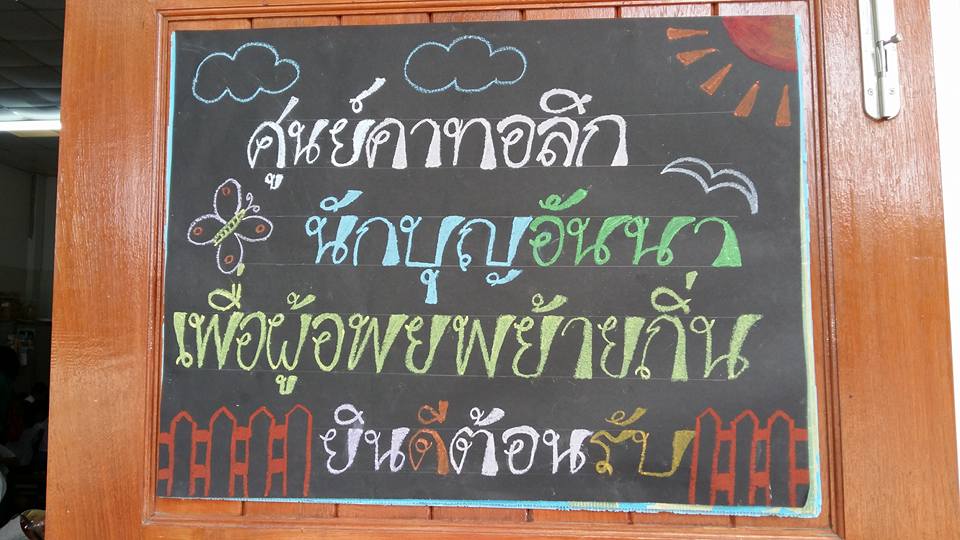 ศูนย์คาทอลิก
นักบุญอันนา
เพื่อผู้อพยพย้ายถิ่น
ยินดีต้อนรับ